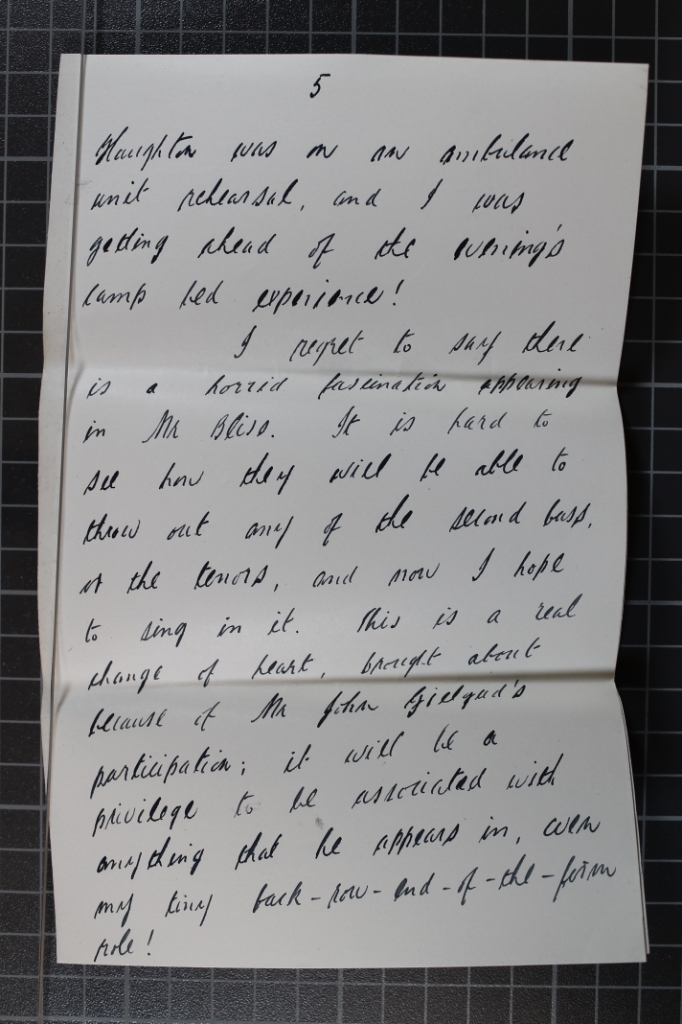 5
Haughton was on an ambulance
unit rehearsal, and I was
getting ahead of the evening's
camp bed experience!
I regret to say there
is a horrid fascination appearing
in Mr Bliss. It is hard to
see how they will be able to
throw out any of the second bass,
or the tenors, and now I hope
to sing in it. This is a real
change of heart, brought about
because of Mr John Gielgud's
participation; it will be a
privilege to be associated with
anything that he appears in, even
my tiny back-row-end-of-the-form
role!